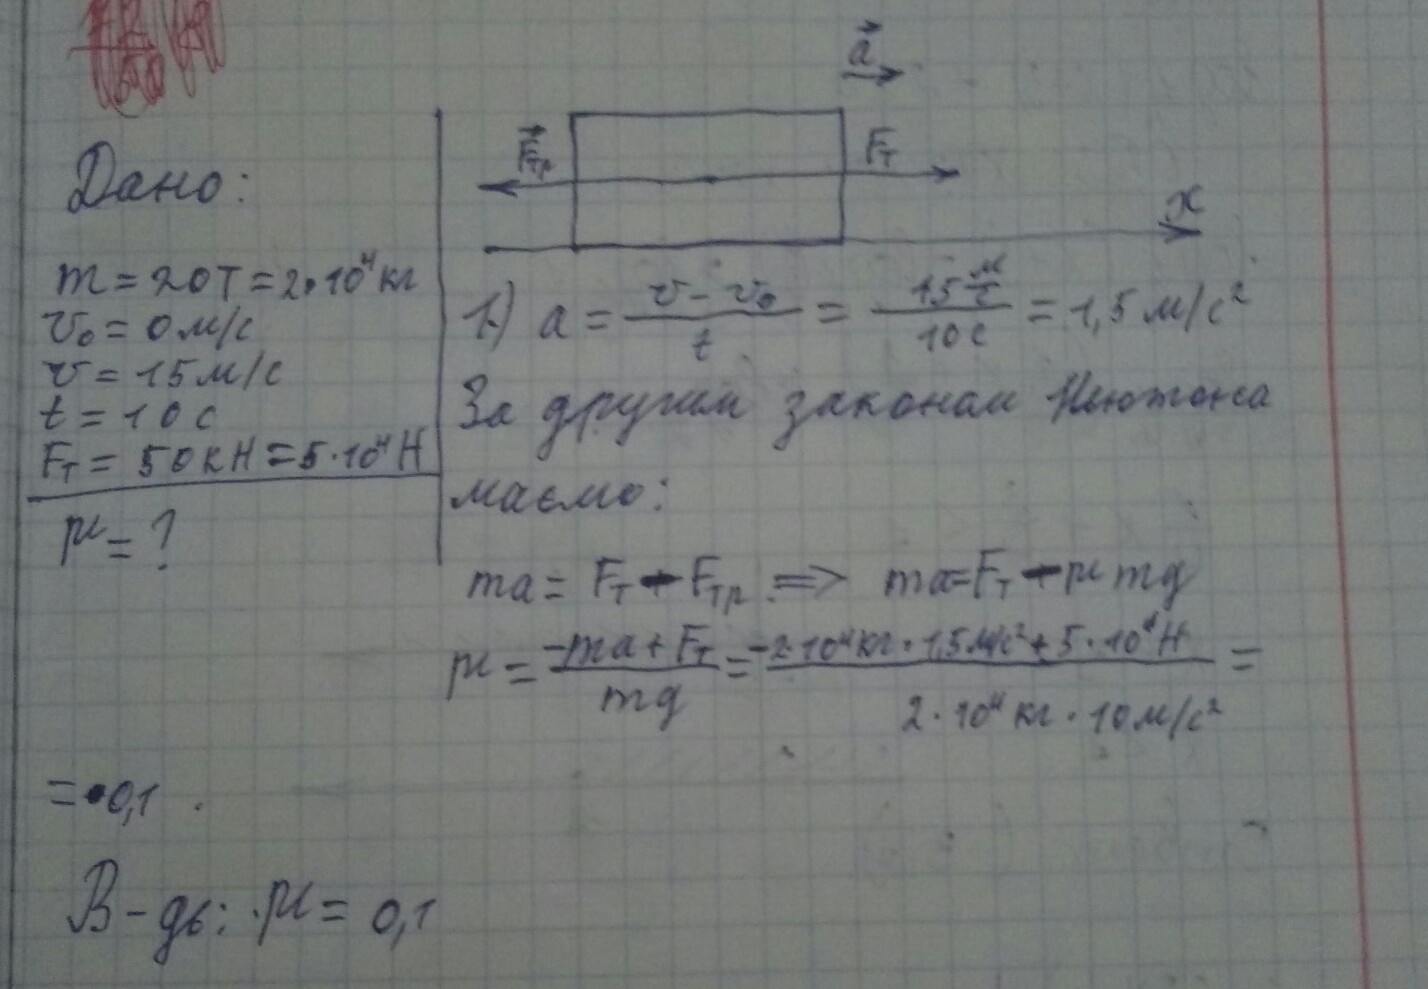 Дано:
m = 20т = 2·10⁴ кг
v₀ = 0 м/с
v = 15 м/с
t = 10 с
Fт = 50кН = 5·10⁴ Н
μ = ?
a⃗
F⃗тр
Fт
x
1.) a = (v - v₀)/t = (15 м/с)/(10 с) = 1,5 м/с²
За другим законом Ньютона
маємо:
ma = Fт - Fтр => ma = Fт - μmg
μ = (-ma + Fт)/(mg) = (-2·10⁴ кг · 1,5 м/с² + 5·10⁴ Н)/(2·10⁴ кг · 10 м/с²) =
= 0,1
В-дь: μ = 0,1